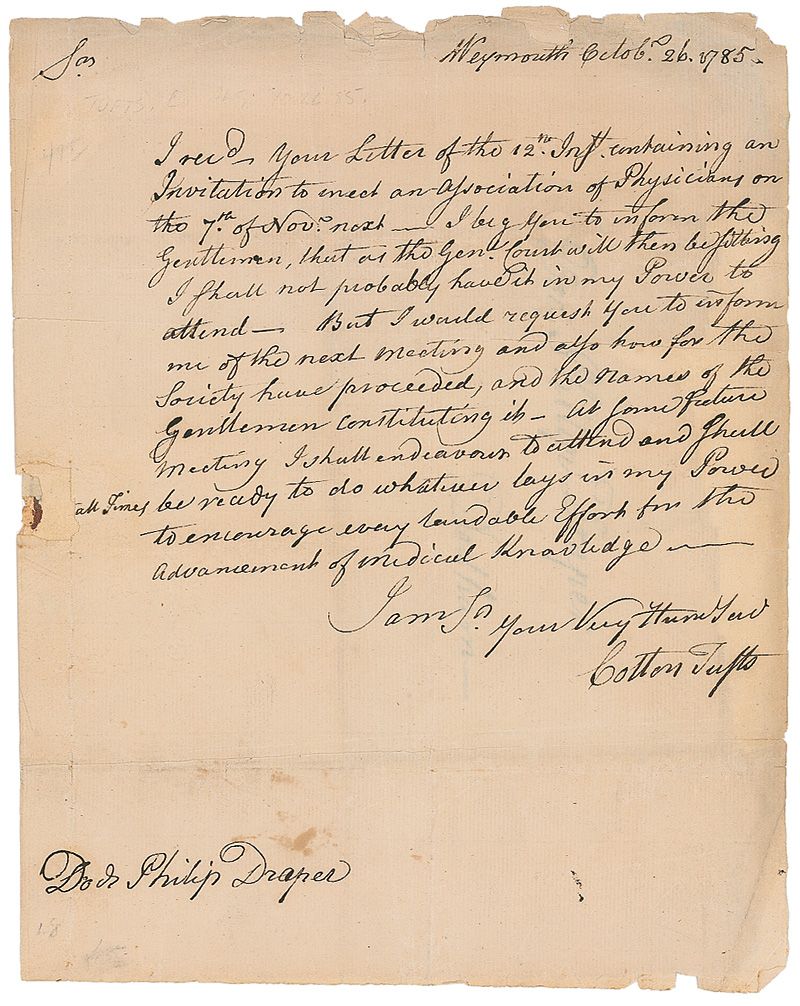 Weymouth Octobr. 26. 1785.
Sr
I recd. Your Letter of the 12th. Inst. containing an
Invitation to meet an Association of Physicians on
the 7th. of Novr. next — I beg You to inform the
Gentlemen, that as the Genl. Court will then be sitting
I shall not probably have it in my Power to
attend — But I would request You to inform
me of the next Meeting and also how far the
Society have proceeded, and the Names of the
Gentlemen constituting it — At some future
Meeting I shall endeavour to attend and shall
all Times be ready to do whatever lays in my Power
to encourage every laudable Effort for the
Advancement of medical Knowledge —
I am Sr. Your Very Hume Serv
Cotton Tufts
Docr Philip Draper